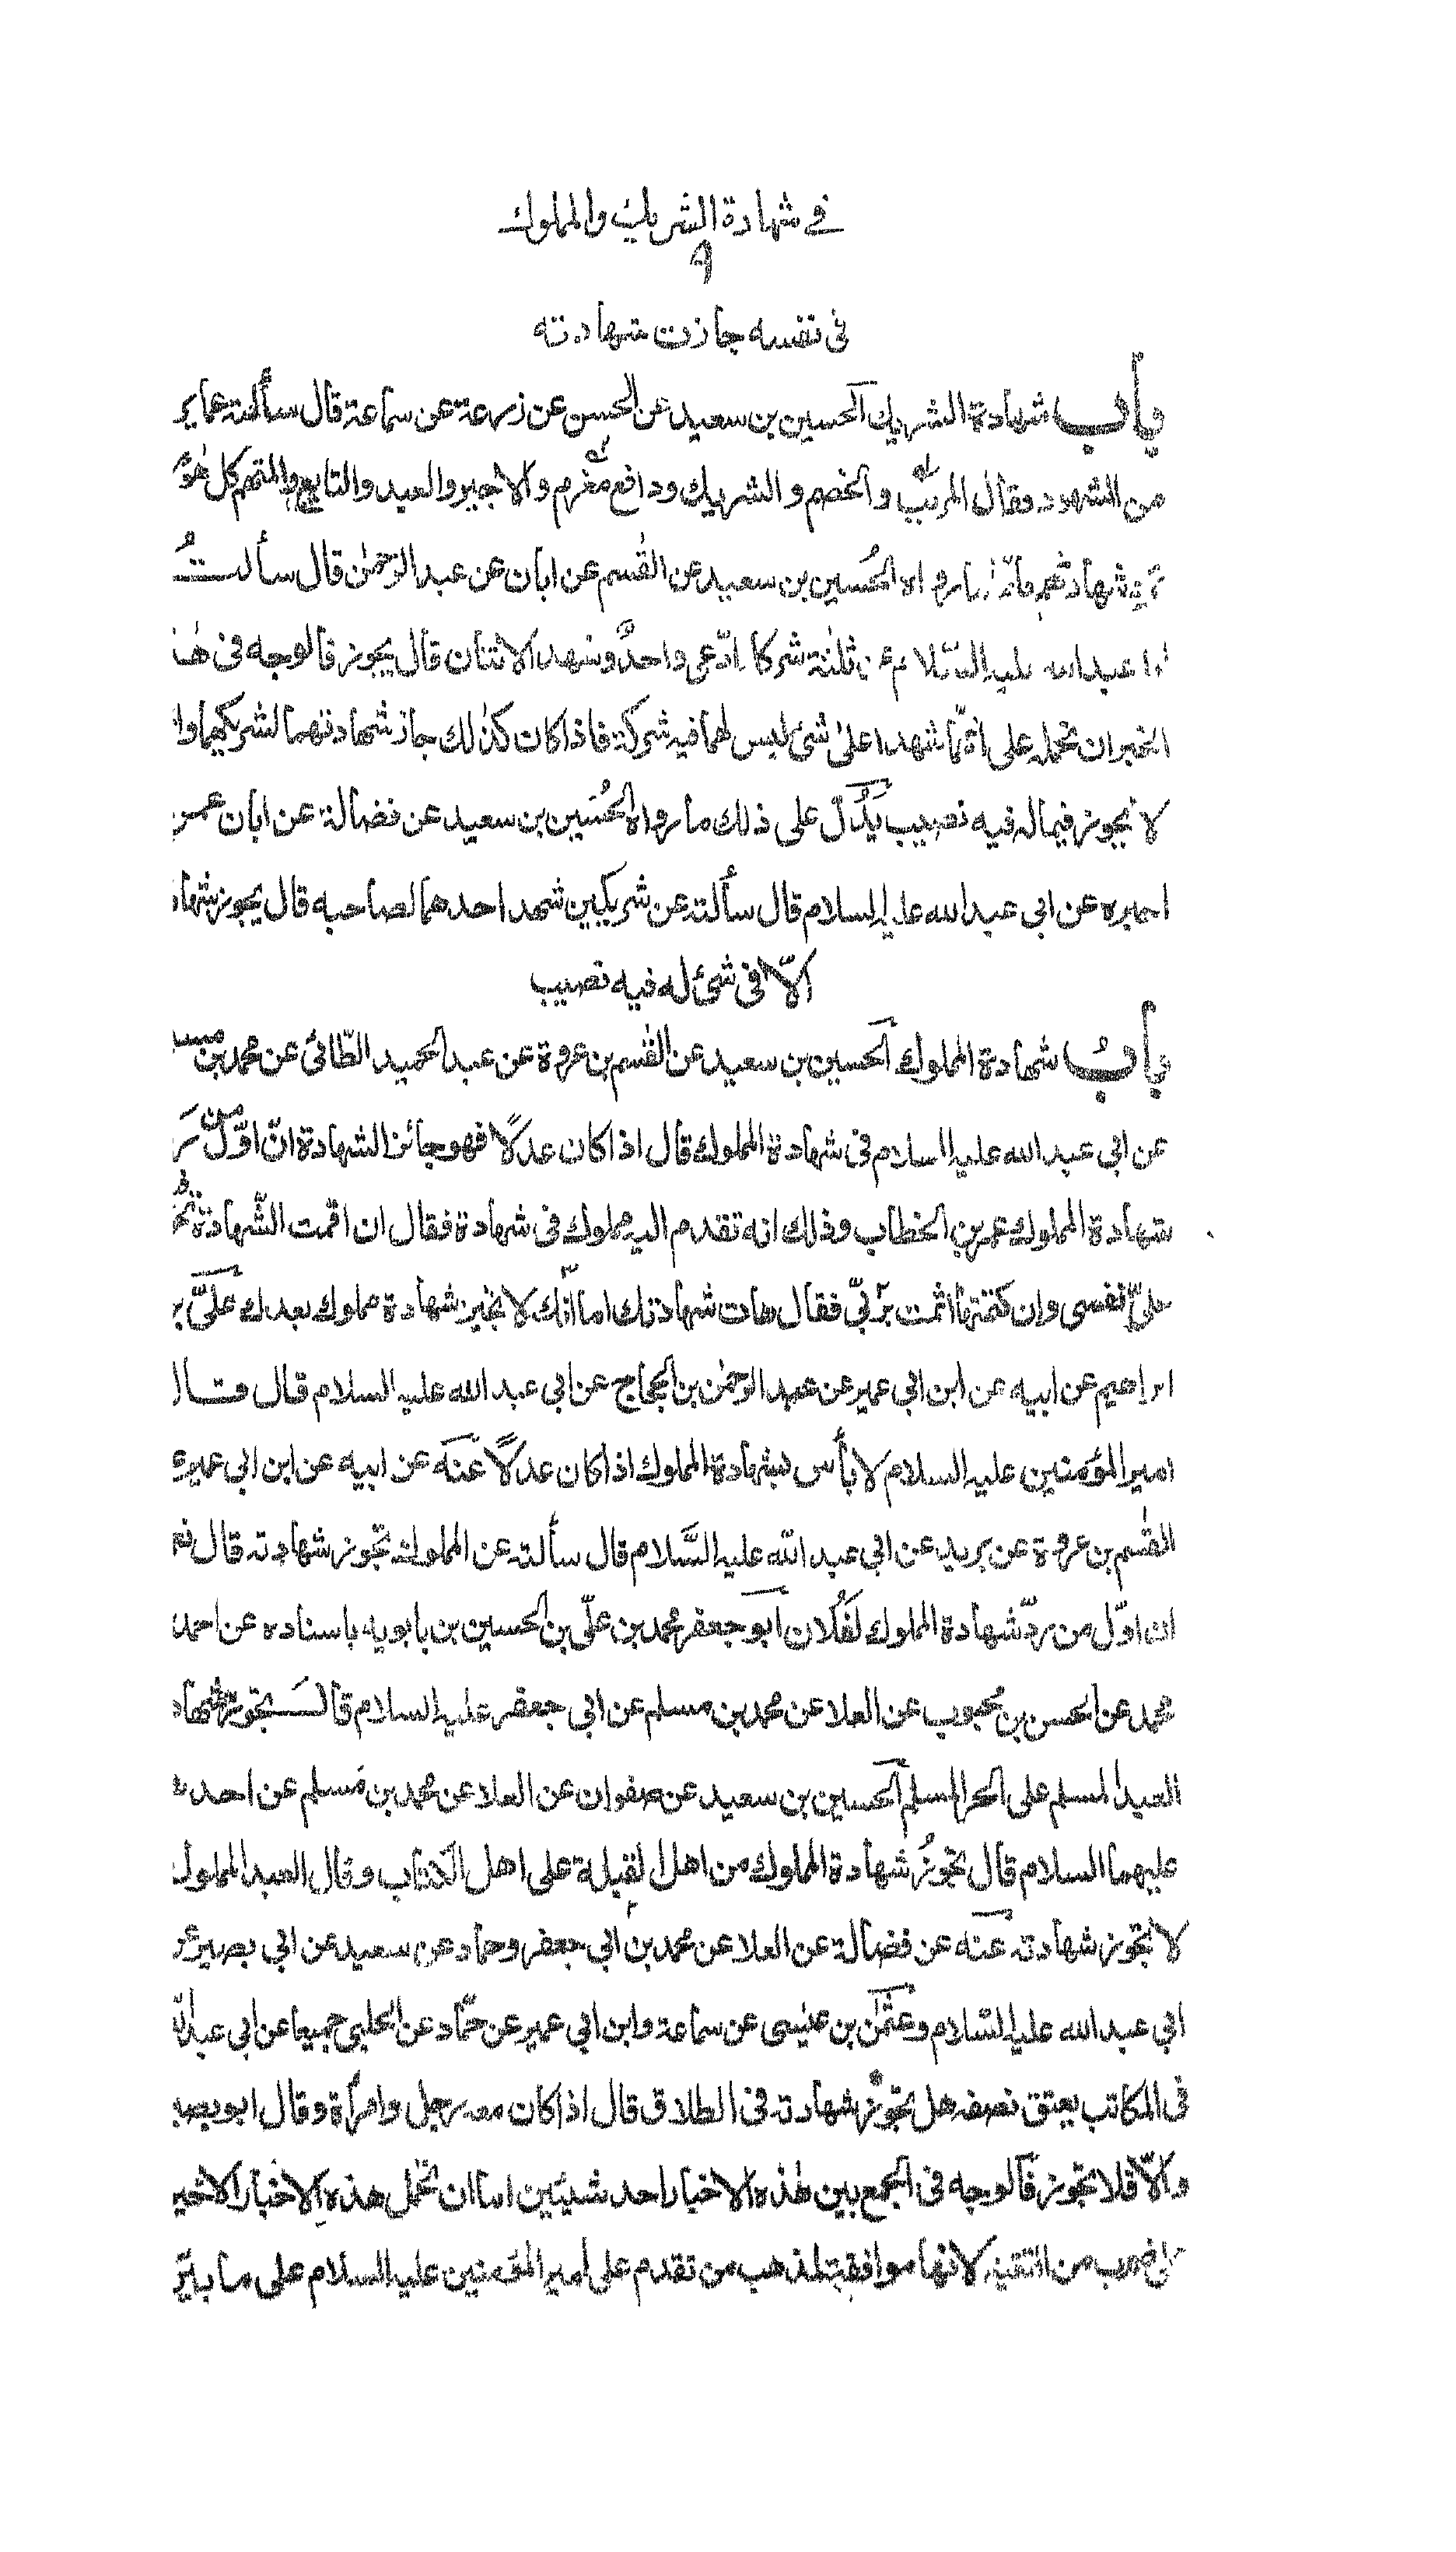 في شهادة الشريك والمملوك
٩
فى نفسه جازت شهادته
باب شهادة الشريك الحسين بن سعيد عن الحسن عن زرعة عن سماعة قال سألته عما ير
من الشهود فقال المريب والخصم والشريك ودافع مغرم والاجير والعبد والتابع والمتهم كل هؤ
شهادتهم رواه الحسين بن سعيد عن القسم عن ابان عن عبد الرحمن قال سألت
عبد الله عليه السلام عن ثلثة شركا ادّعى واحدٌ وشهد الاثنان قال يجوز فالوجه فى هذ
الخبر ان نحمله على انّهما شهدا على شئ ليس لهما فيه شركة فاذا كان كذلك جاز شهادتهما لشريكهما وا
لا تجوز فيما له فيه نصيب يَدُلّ على ذلك ما رواه الحُسَين بن سعيد عن فضالة عن ابان عمن
اخبره عن ابى عبد الله عليه السلام قال سألته عن شريكين شهد احدهما لصاحبه قال يجوز شهاد
الاّ فى شئ له فيه نصيب
بابُ شهادة المملوك الحسين بن سعيد عن القسم بن عروة عن عبد الحميد الطّائى عن محمد بن مسل
عن ابى عبد الله عليه السلام فى شهادة المملوك قال اذا كان عدلًا فهو جائز الشهادة انّ اوّل من ر
شهادة المملوك عمر بن الخطاب وذلك انه تقدم اليه مملوك فى شهادة فقال ان اقمت الشّهادة تخو
على نفسى وان كتمتها اثمت بربّي فقال هات شهادتك اما انّك لا نجيز شهادة مملوك بعدك عَلىّ بـ
ابراهيم عن ابيه عن ابن ابى عمير عن عبد الرحمن بن الحجاج عن ابى عبد الله عليه السلام قال قال
امير المؤمنين عليه السلام لا بأس بشهادة المملوك اذا كان عدلًا عنه عن ابيه عن ابن ابى عمير ع
القسم بن عروة عن بريد عن ابى عبد الله عليه السَّلام قال سألته عن المملوك تجوز شهادته قال نعم
ان اوّل من ردّ شهادة المملوك لَفُلان ابو جعفر محمد بن علّى بن الحسين بن بابويه باسناده عن احمد
محمد عن الحسن بن محبوب عن العلا عن محمد بن مسلم عن ابى جعفر عليه السلام قال تجوز شهاد
العبد المسلم على الحر المسلم الحسين بن سعيد عن صفوان عن العلا عن محمد بن مسلم عن احد
عليهما السلام قال تجوزُ شهادة المملوك من اهل القبلة على اهل الكتاب وقال العبد المملوك
لا تجوز شهادته عنه عن فضالة عن العلا عن محمد بن ابى جعفر وحماد عن سعيد عن ابى بصير عن
ابى عبد الله عليه السّلام وعثمٰن بن عيسى عن سماعة وابن ابى عمير عن حمّاد عن الحلبى جميعا عن ابى عبد الله
فى المكاتب يعتق نصفه هل تجوز شهادته فى الطلاق قال اذا كان معه رجل وامرأة وقال ابو بصير
والاّ فلا تجوز فالوجه فى الجمع بين هٰذه الاخبار احد شيئين اما ان نحمل هذه الاخبار الاخير
على ضرب من التقية لانها موافقة لمذهب من تقدم على امير المؤمنين عليه السلام على ما بيّن